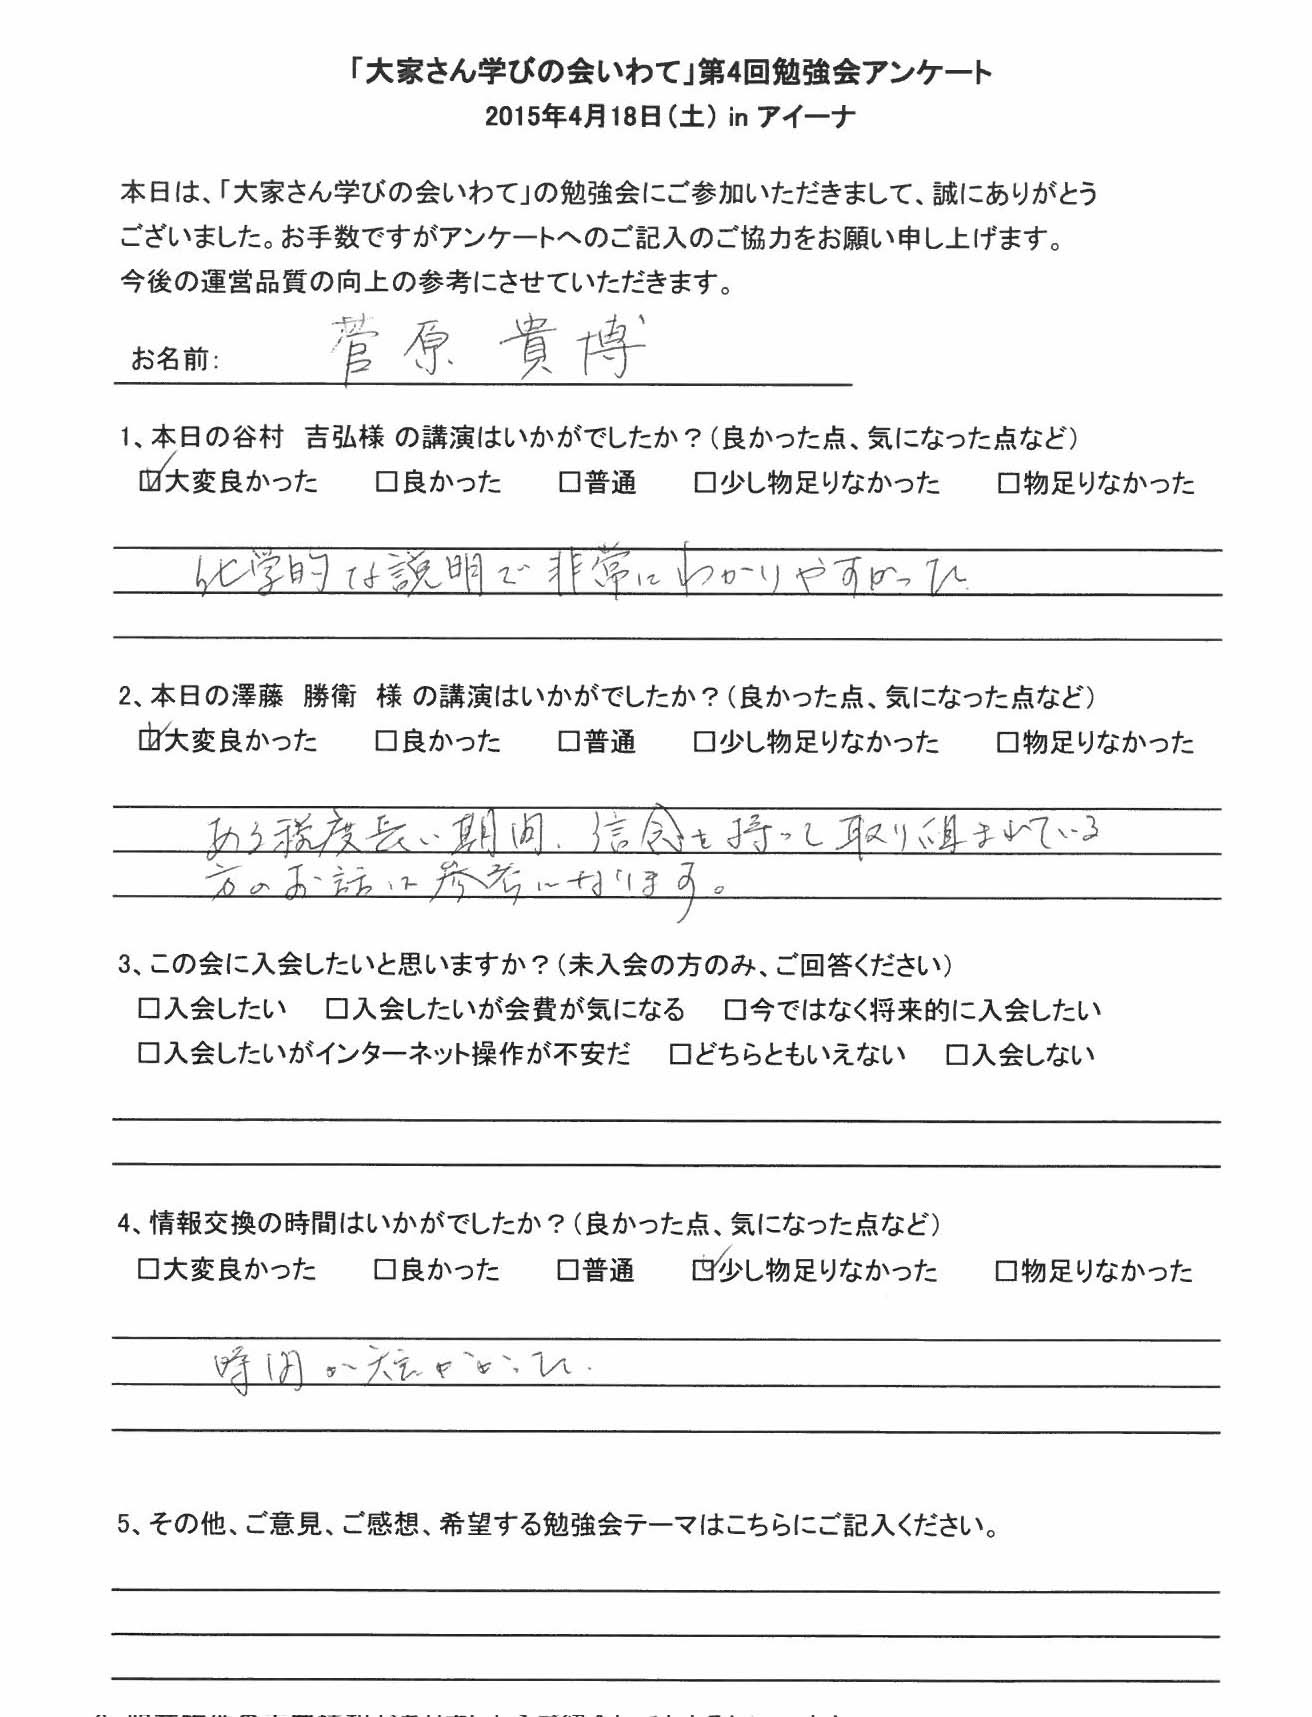 「大家さん学びの会いわて」第4回勉強会アンケート
2015年4月18日(土) in アイーナ
本日は、「大家さん学びの会いわて」の勉強会にご参加いただきまして、誠にありがとう
ございました。お手数ですがアンケートへのご記入のご協力をお願い申し上げます。
今後の運営品質の向上の参考にさせていただきます。
お名前: 菅原 貴博
1、本日の谷村 吉弘様 の講演はいかがでしたか?(良かった点、気になった点など)
☑大変良かった □良かった □普通 □少し物足りなかった □物足りなかった
化学的な説明で非常にわかりやすかった
2、本日の澤藤 勝衛 様 の講演はいかがでしたか?(良かった点、気になった点など)
☑大変良かった □良かった □普通 □少し物足りなかった □物足りなかった
ある程度長い期間、信念を持って取り組まれている
方のお話は参考になります。
3、この会に入会したいと思いますか?(未入会の方のみ、ご回答ください)
□入会したい □入会したいが会費が気になる □今ではなく将来的に入会したい
□入会したいがインターネット操作が不安だ □どちらともいえない □入会しない
4、情報交換の時間はいかがでしたか?(良かった点、気になった点など)
□大変良かった □良かった □普通 ☑少し物足りなかった □物足りなかった
時間が短かかった.
5、その他、ご意見、ご感想、希望する勉強会テーマはこちらにご記入ください。